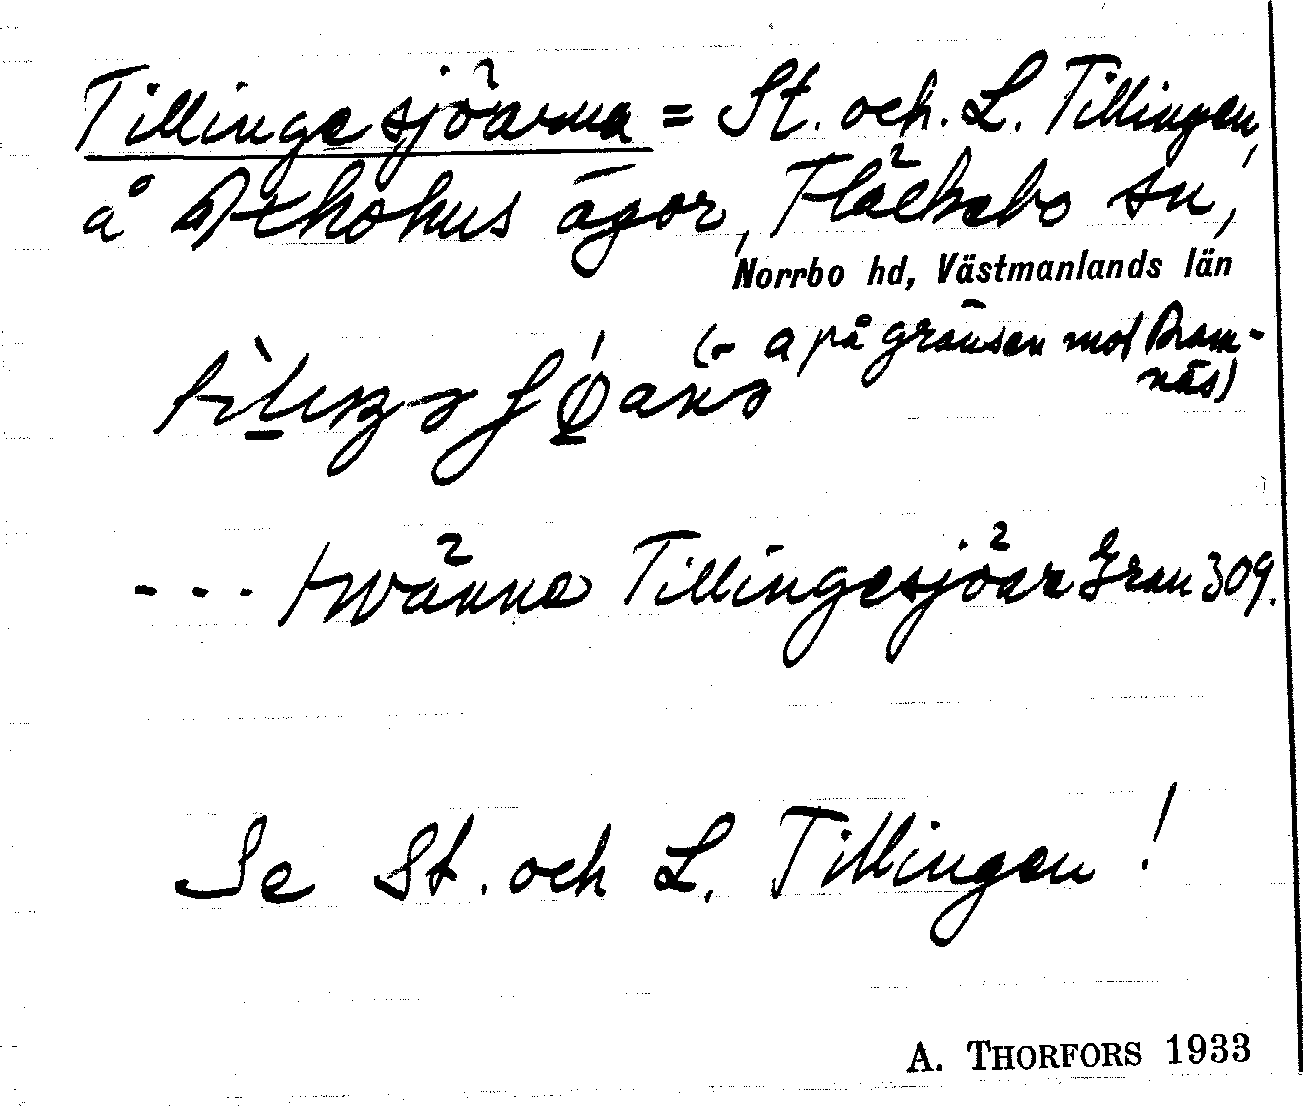 Tillingesjöarna = St. och. L. Tillingen,
å ägor, Fläckebo sn,
Norrbo hd, Västmanlands län
(- a på gränsen mot Ram-
näs)
- - - twänne Tillingesjöar Gran 309.
Se St. och L. Tillingen!
A. THORFORS 1933